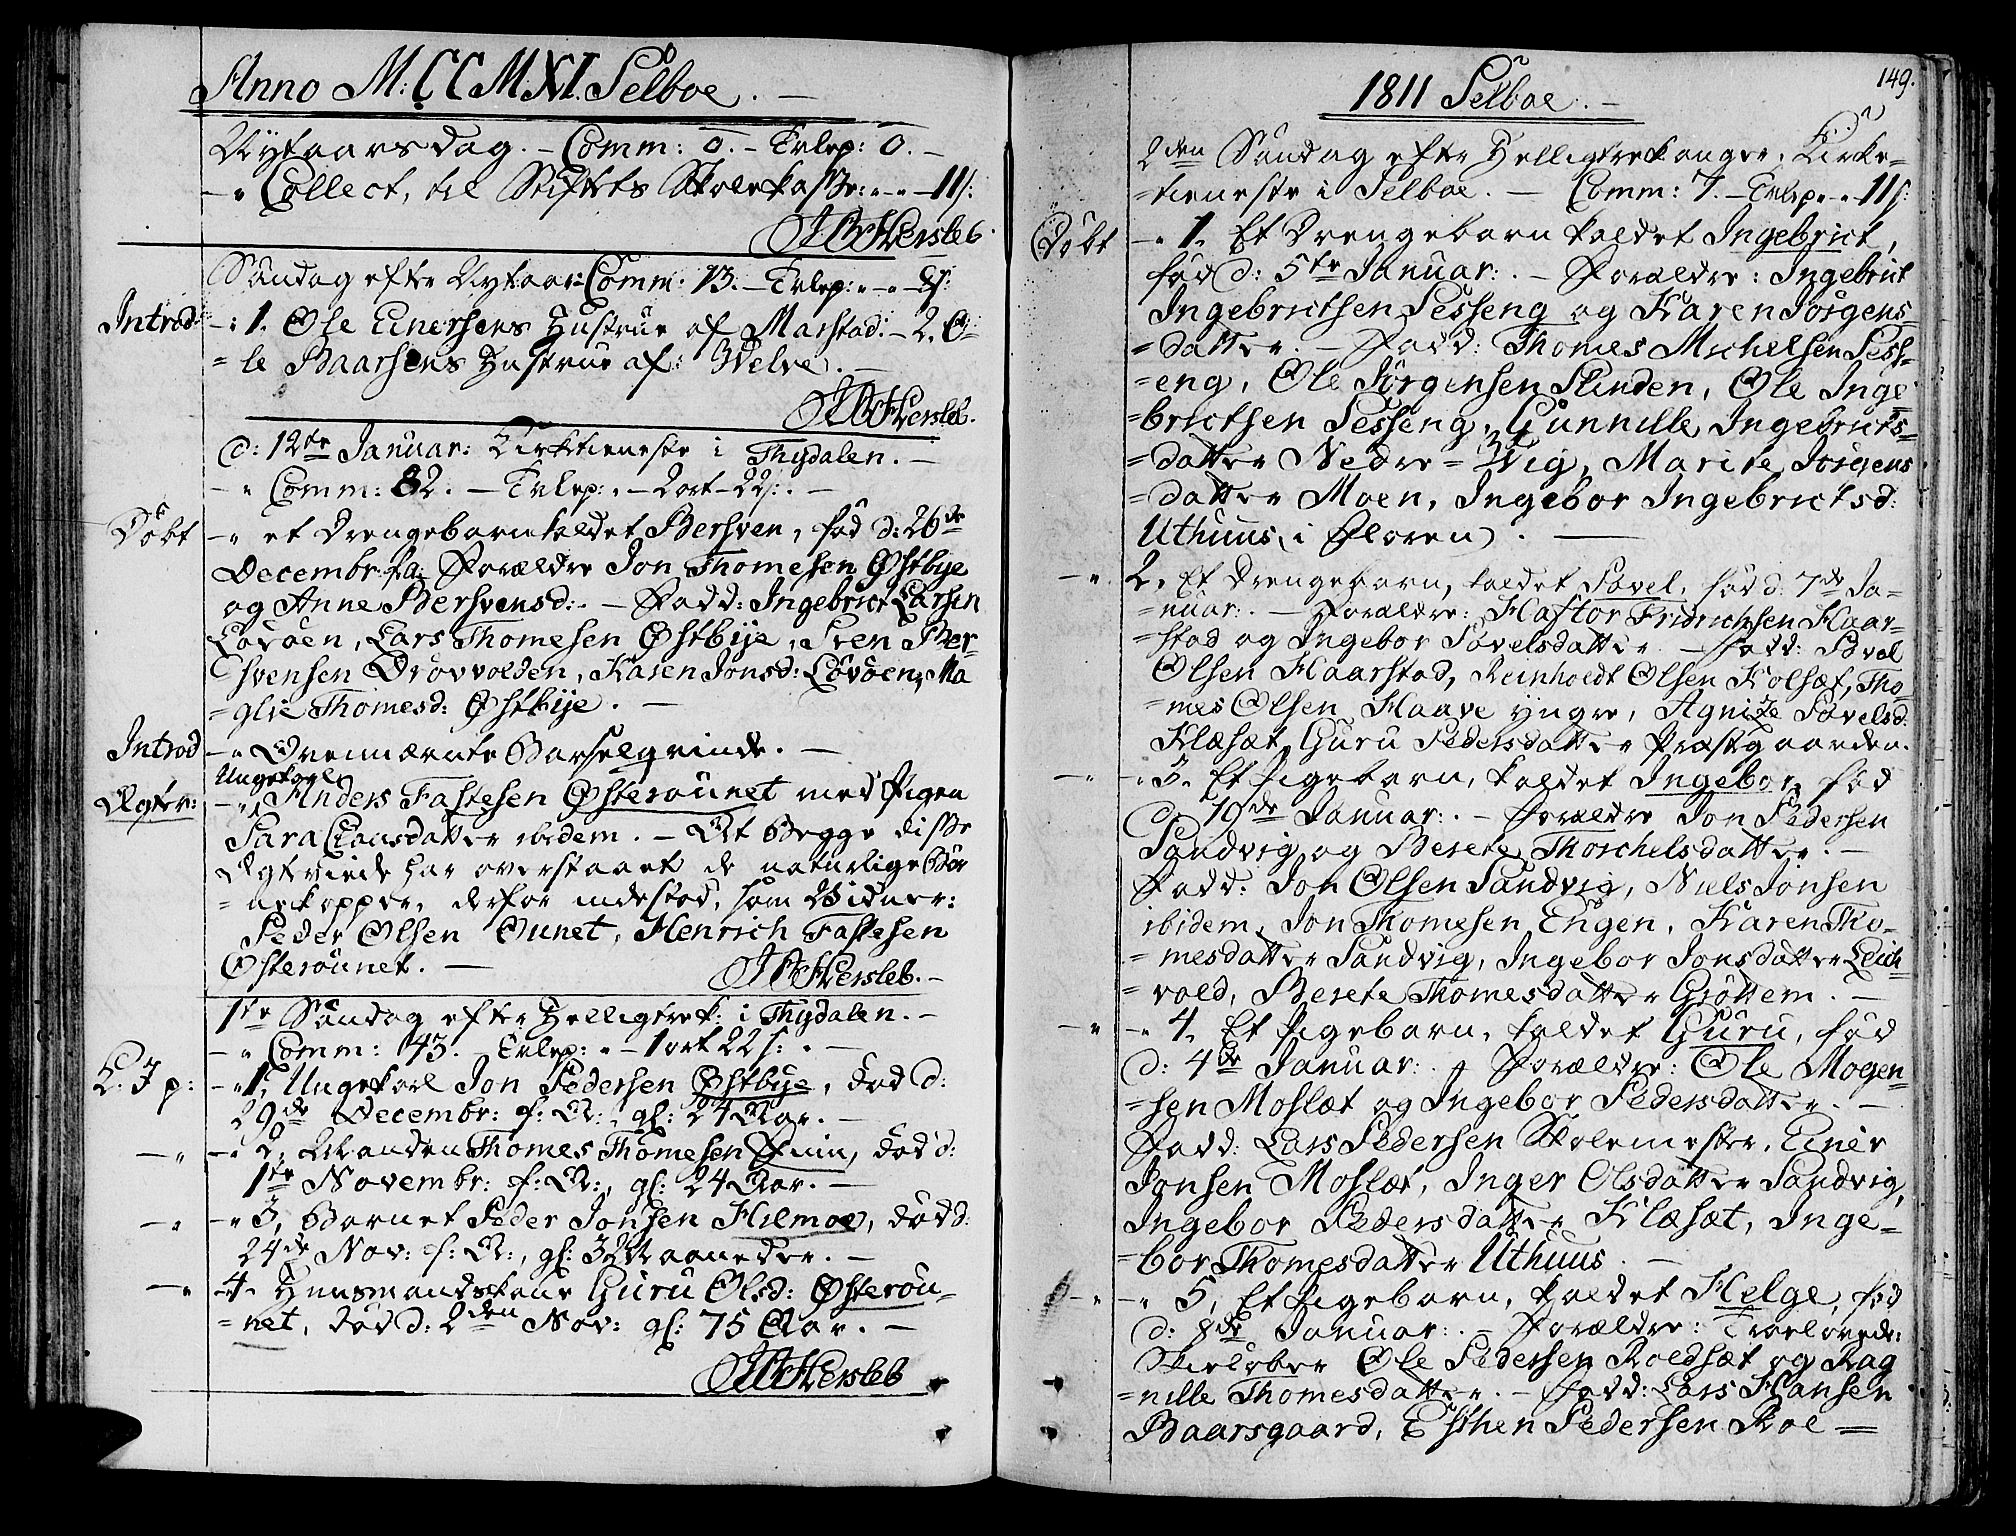 Anno M:CCMXI. Selboe. —
Nytaarsdag. – Comm: 0. – Evlep: 0. –
–" Collect, til Stiftets Skolekasse: " – " – 11 s:
J B Hersleb.
Søndag efter Nytaar: Comm: 13. – Evlep: " – "
Introd – : 1. Ole Einersens Hustrue af Marstad. – 2. O-
= le Baarsens Hustrue af: Welve. –
J B Hersleb.
d: 12te Januar: Kirketieneste i Thydalen. –
– " Comm: 82. – Evlep: " – 2 ort – 22 s: . –
Døbt – " et Drengebarn kaldet Bersven, fød d: 26de
Decembr: f. a. Forældre Jon Thomesen Østbye
og Anne Bersvensd: . – Fadd: Ingebrict Larsen
Løvøen, Lars Thomesen Østbye, Sven Ber-
svensen Drøvvolden, Karen Jonsd: Løvøen, Ma
= glie Thomesd: Østbye. –
Introd – " Ovennævnte Barselqvinde. –
Ungekarl
Ægtev: – " Anders Fastesen Østerøunet med Pigen
Sara Clausdatter ibidem. – At Begge disse
Ægtviede har overstaaet de naturlige Bør
= nekopper, derfor indestod, som Vidner:
Peder Olsen Øunet, Henrich Fastesen
Østerøunet. – J B Hersleb. –
1te Søndag efter Helligtrek: i Thydalen. –
– " Comm: 43. – Evlep: " – 1 ort 22 s: . –
L. J p: – " 1. Ungekarl Jon Pedersen Østbye, død d:
29de Decembr: f: A:, gl: 24 Aar. –
– " – " 2, Manden Thomes Thomesen Fuin, død d:
1te Novembr: f: A:, gl: 24 Aar. –
– " – " 3, Barnet Peder Jonsen Hilmoe, død d:
24de Nov: f: A:, gl: 32 Maaneder. –
– " – 4. Huusmandskone Guru Olsd: Østerøu-
= net, død d: 2den Nov: gl: 75 Aar. –
J B Hersleb
149.
1811 Selboe. –
2den Søndag efter Helligtrekonger, Kirke-
= tieneste i Selboe. – Comm: 7. – Evlep. " – " 11 s:
Døbt – " 1. Et Drengebarn kaldet Ingebrict,
fød d: 5te Januar: . – Forældre: Ingebrict
Ingebrictsen Sesseng og Karen Jørgens-
= datter. – Fadd: Thomes Michelsen Sess-
= eng, Ole Jørgensen Slinden, Ole Inge
= brictsen Sesseng, Gunnille Ingebricts-
= datter Nedre = Wig, Marite Jørgens
= datter Moen, Ingebor Ingebrictsd:
Uthuus, i Floren). —
– " 2. Et Drengebarn, kaldet Povel, fød d: 7de Ja-
= nuar: . – Forældre: Haftor Fridrichsen Haar-
= stad og Ingebor Povelsdatter – Fadd: Povel
Olsen Haarstad, Reinholdt Olsen Kolsæt, Tho-
= mes Olsen Haave yngre, Agnite Povelsd:
Klæsæt, Guru Pedersdatter Præstgaarden.
– " – " 3. Et Pigebarn, kaldet Ingebor, fød
d: 19de Januar: . – Forældre Jon Pedersen
Sandvig og Berete Thorchelsdatter. –
Fadd: Jon Olsen Sandvig, Niels Jonsen
ibidem, Jon Thomesen Engen, Karen Tho-
= mesdatter Sandvig, Ingebor Jonsdatter Leik-
= vold, Berete Thomesdatter Grøttem. –
– " – " 4. Et Pigebarn, kaldet Guru, fød
d: 4de Januar: . – Forældre: Ole Mogen-
= sen Moslæt og Ingebor Pedersdatter. –
Fadd: Lars Pedersen Skolemester, Einer
Jonsen Moslæt, Inger Olsdatter Sandvig,
Ingebor Pedersdatter Klæsæt, Inge-
= bor Thomesdatter Uthuus. —
– " – " 5, Et Pigebarn, kaldet Helge, fød
d: 8de Januar: . – Forældre: Trolovede:
Skieløber Ole Pedersen Roedsæt og Rag
= nille Thomesdatter. – Fadd: Lars Hansen
Baarsgaard, Esthen Pedersen Roe =